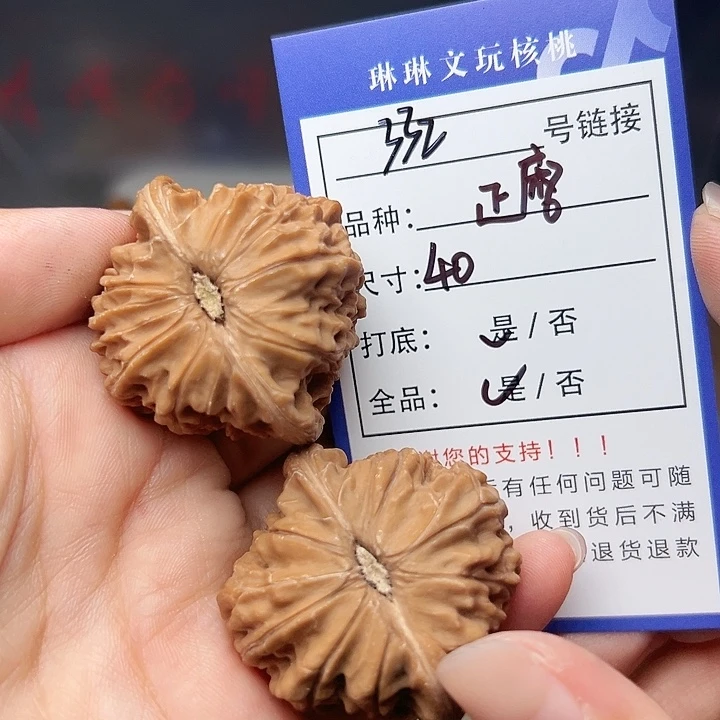 琳琳文玩核桃
332 号链接
品种：正磨
尺寸：40
打底：是/否
全品：是/否
谢您的支持！！！
有任何问题可随
，收到货后不满
退货退款